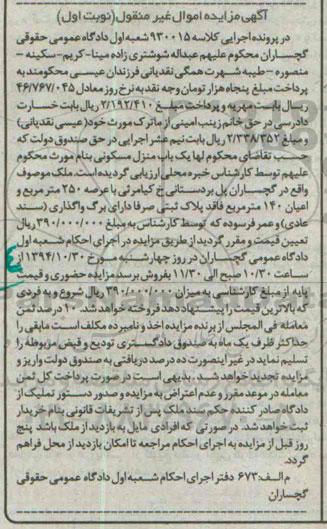 آگهی مزایده اموال غیر منقول(نوبت اول)
در پرونده اجرایی کلاسه ۹۳۰۰۱۵ شعبه اول دادگاه عمومی حقوقی
گچساران محکوم علیهم عبداله شوشتری زاده مینا-کریم-سکینه-
منصوره-طیبه شهرت همگی نقدیانی فرزندان عیسی محکومند به
پرداخت مبلغ پنجاه هزار تومان وجه نقد به نرخ روز معادل ۴۶/۷۶۷/۰۴۵
ریال بابت مهریه و پرداخت مبلغ ۲/۱۹۲/۴۱۰ ریال بابت خسارت
دادرسی در حق خانم زینب امینی از ماترک مورث خود(عیسی نقدیانی)
و مبلغ ۲/۳۳۸/۳۵۲ ریال بابت نیم عشر اجرایی در حق صندوق دولت که
حسب تقاضای محکوم لها یک باب منزل مسکونی بنام مورث محکوم
علیهم توسط کارشناس خبره محلی ارزیابی گردیده است. ملک موصوف
واقع در گچساران پل بردستانی خ کیامرثی با عرصه ۲۵۰ متر مربع و
اعیان ۱۴۰ مترمربع فاقد پلاک ثبتی صرفا دارای برگ واگذاری (سند
عادی) و عمر فرسوده که توسط کارشناس به مبلغ ۳۹۰/۰۰۰/۰۰۰ ریال
تعیین قیمت و مقرر گردید از طریق مزایده در اجرای احکام شعبه اول
دادگاه عمومی گچساران در روز چهارشنبه مورخ ۱۳۹۴/۱۰/۳۰ از
ساعت ۱۰/۳۰ صبح الی ۱۱/۳۰ بفروش برسد مزایده حضوری و قیمت
پایه از مبلغ کارشناسی به میزان ۳۹۰/۰۰۰/۰۰۰ ریال شروع و به فردی
که بالاترین قیمت را پیشنهاد دهد فروخته خواهد شد. ۱۰ درصد ثمن
معامله فی المجلس از برنده مزایده اخذ و نامبرده مکلف است مابقی را
حداکثر ظرف یک ماه به صندوق دادگستری تودیع و قبض مربوطه را
تسلیم نماید در غیر اینصورت ده درصد دریافتی به صندوق دولت واریز و
مزایده تجدید خواهد شد. بدیهی است در صورت پرداخت کل ثمن
معامله در موعد مقرر و عدم اعتراض به مزایده و صدور دستور تملیک از
دادگاه صادر کننده حکم سند ملک پس از تشریفات قانونی بنام خریدار
ثبت خواهد شد. در صورتی که افرادی مایل به بازدید از ملک باشد پنج
روز قبل از مزایده به اجرای احکام مراجعه تا امکان بازدید از محل فراهم
گردد.
م الف:۶۷۳ دفتر اجرای احکام شعبه اول دادگاه عمومی حقوقی
گچساران